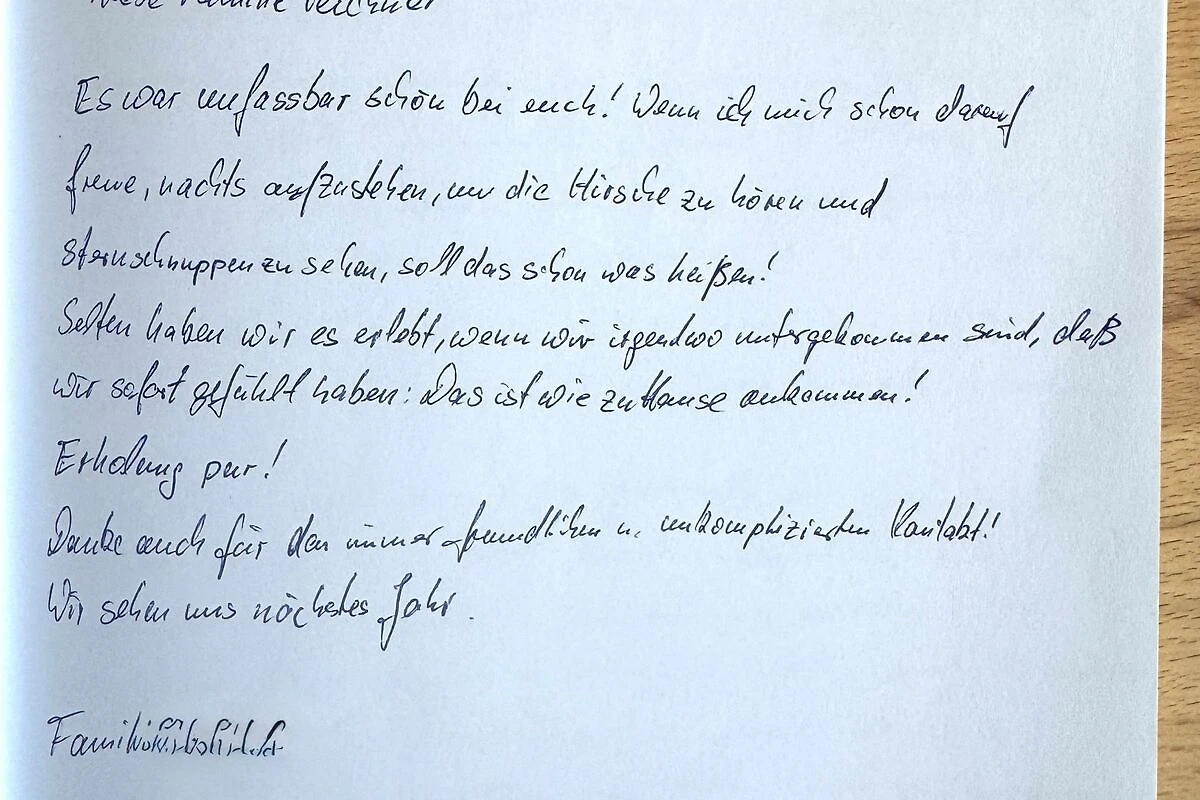 Es war unfassbar schön bei euch! Wenn ich mich schon darauf
freue, nachts aufzustehen, um die Hirsche zu hören und
Sternschnuppen zu sehen, soll das schon was heißen!
Selten haben wir es erlebt, wenn wir irgendwo untergekommen sind, daß
wir sofort gefühlt haben: Das ist wie zuHause ankommen!
Erholung pur!
Danke auch für den immer freundlichen u. unkomplizierten Kontakt!
Wir sehen uns nächstes Jahr.